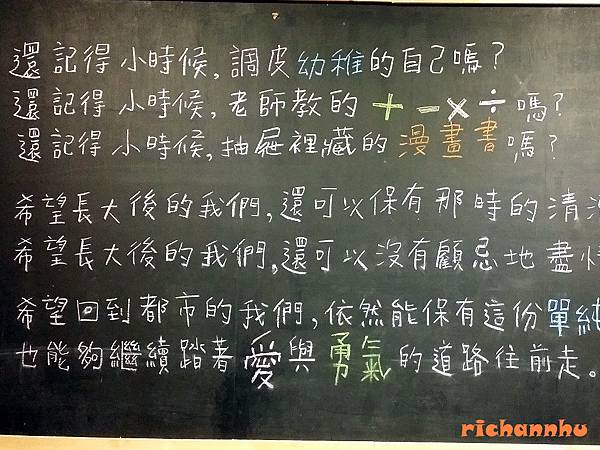 還記得小時候,調皮幼稚的自己嗎?
還記得小時候,老師教的+-×÷嗎?
還記得小時候,抽屜裡藏的漫畫書嗎?
希望長大後的我們,還可以保有那時的清
希望長大後的我們,還可以沒有顧忌地盡
希望回到都市的我們,依然能保有這份單純
也能夠繼續踏著愛與勇氣的道路往前走。
richannhu